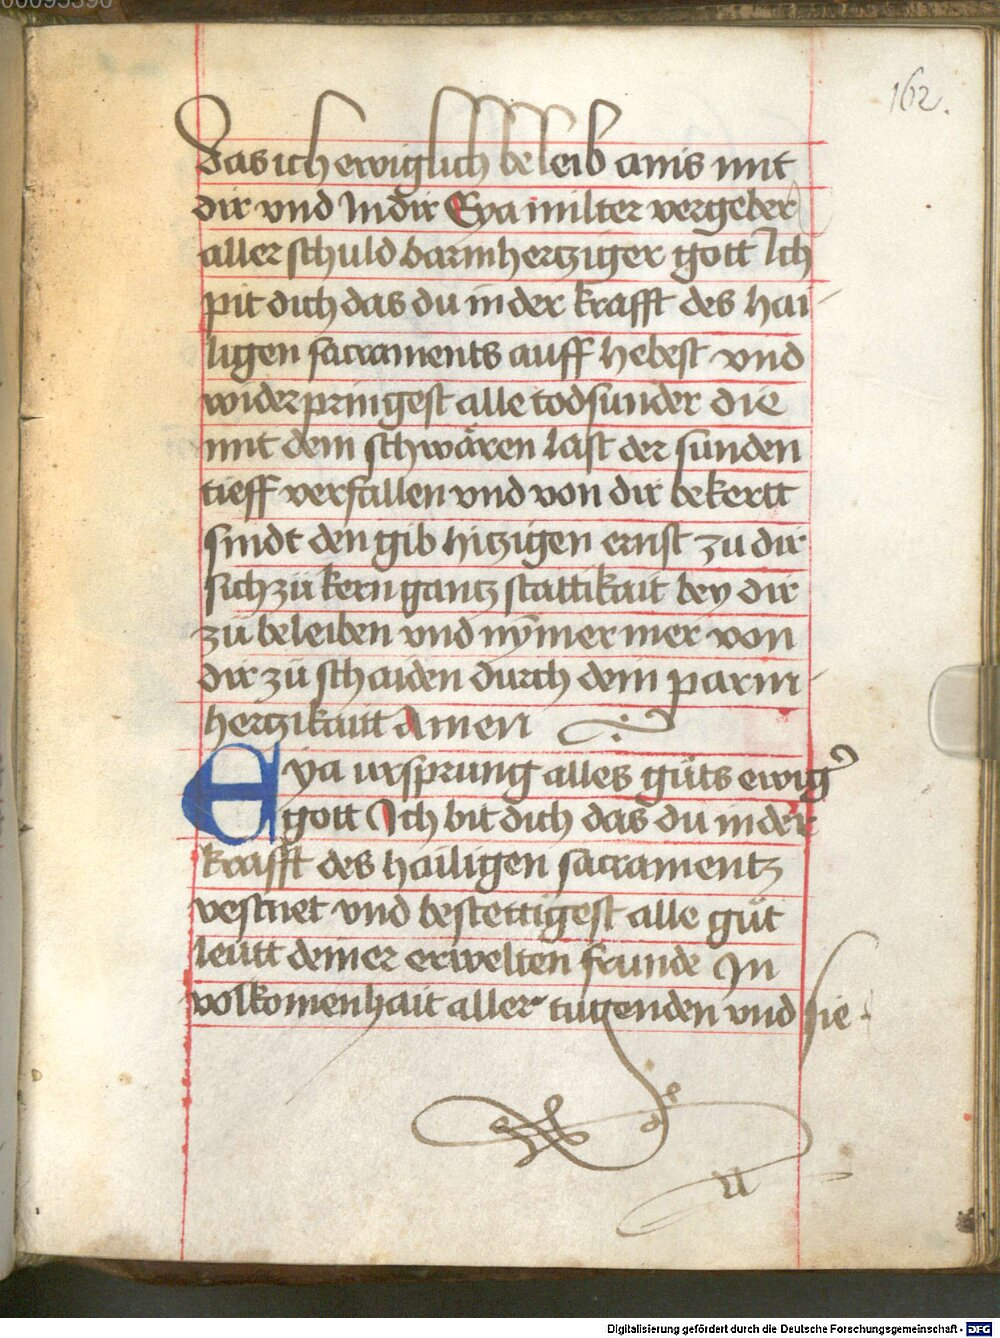 00095390
162.
das ich ewiglich beleib ainis mit
dir vnd In dir Eya milter vergeber
aller schuld barmhertziger gott Ich
pit dich das du in der krafft des hai-
ligen sacraments auff hebest vnd
widerpringest alle todsunder die
mit dem schwären last der sunden
tieff verfallen vnd von dir bekertt
sindt den gib hitzigen ernst zu dir
sich zů kern gantz stattikait bey dir
zů beleiben vnd nymer mer von
dir zů schaiden durch dein parm-
hertzikaitt Amen
Eya vrsprung alles gůts ewigͥ
gott Ich bit dich das du in der
krafft des hailigen sacramentz
vestnet vnd bestettigest alle gůt
leůtt deiner erwelten frunde In
volkomenhait aller tugenden vnd sie
Digitalisierung gefördert durch die Deutsche Forschungsgemeinschaft - DFG